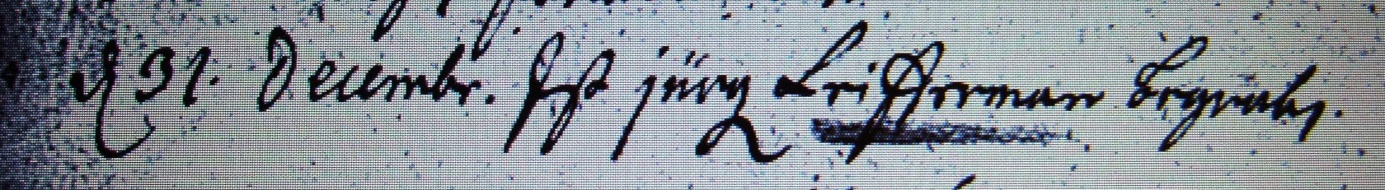 d 31. Decembr. Ist Jürg Leisterman Begrabn.